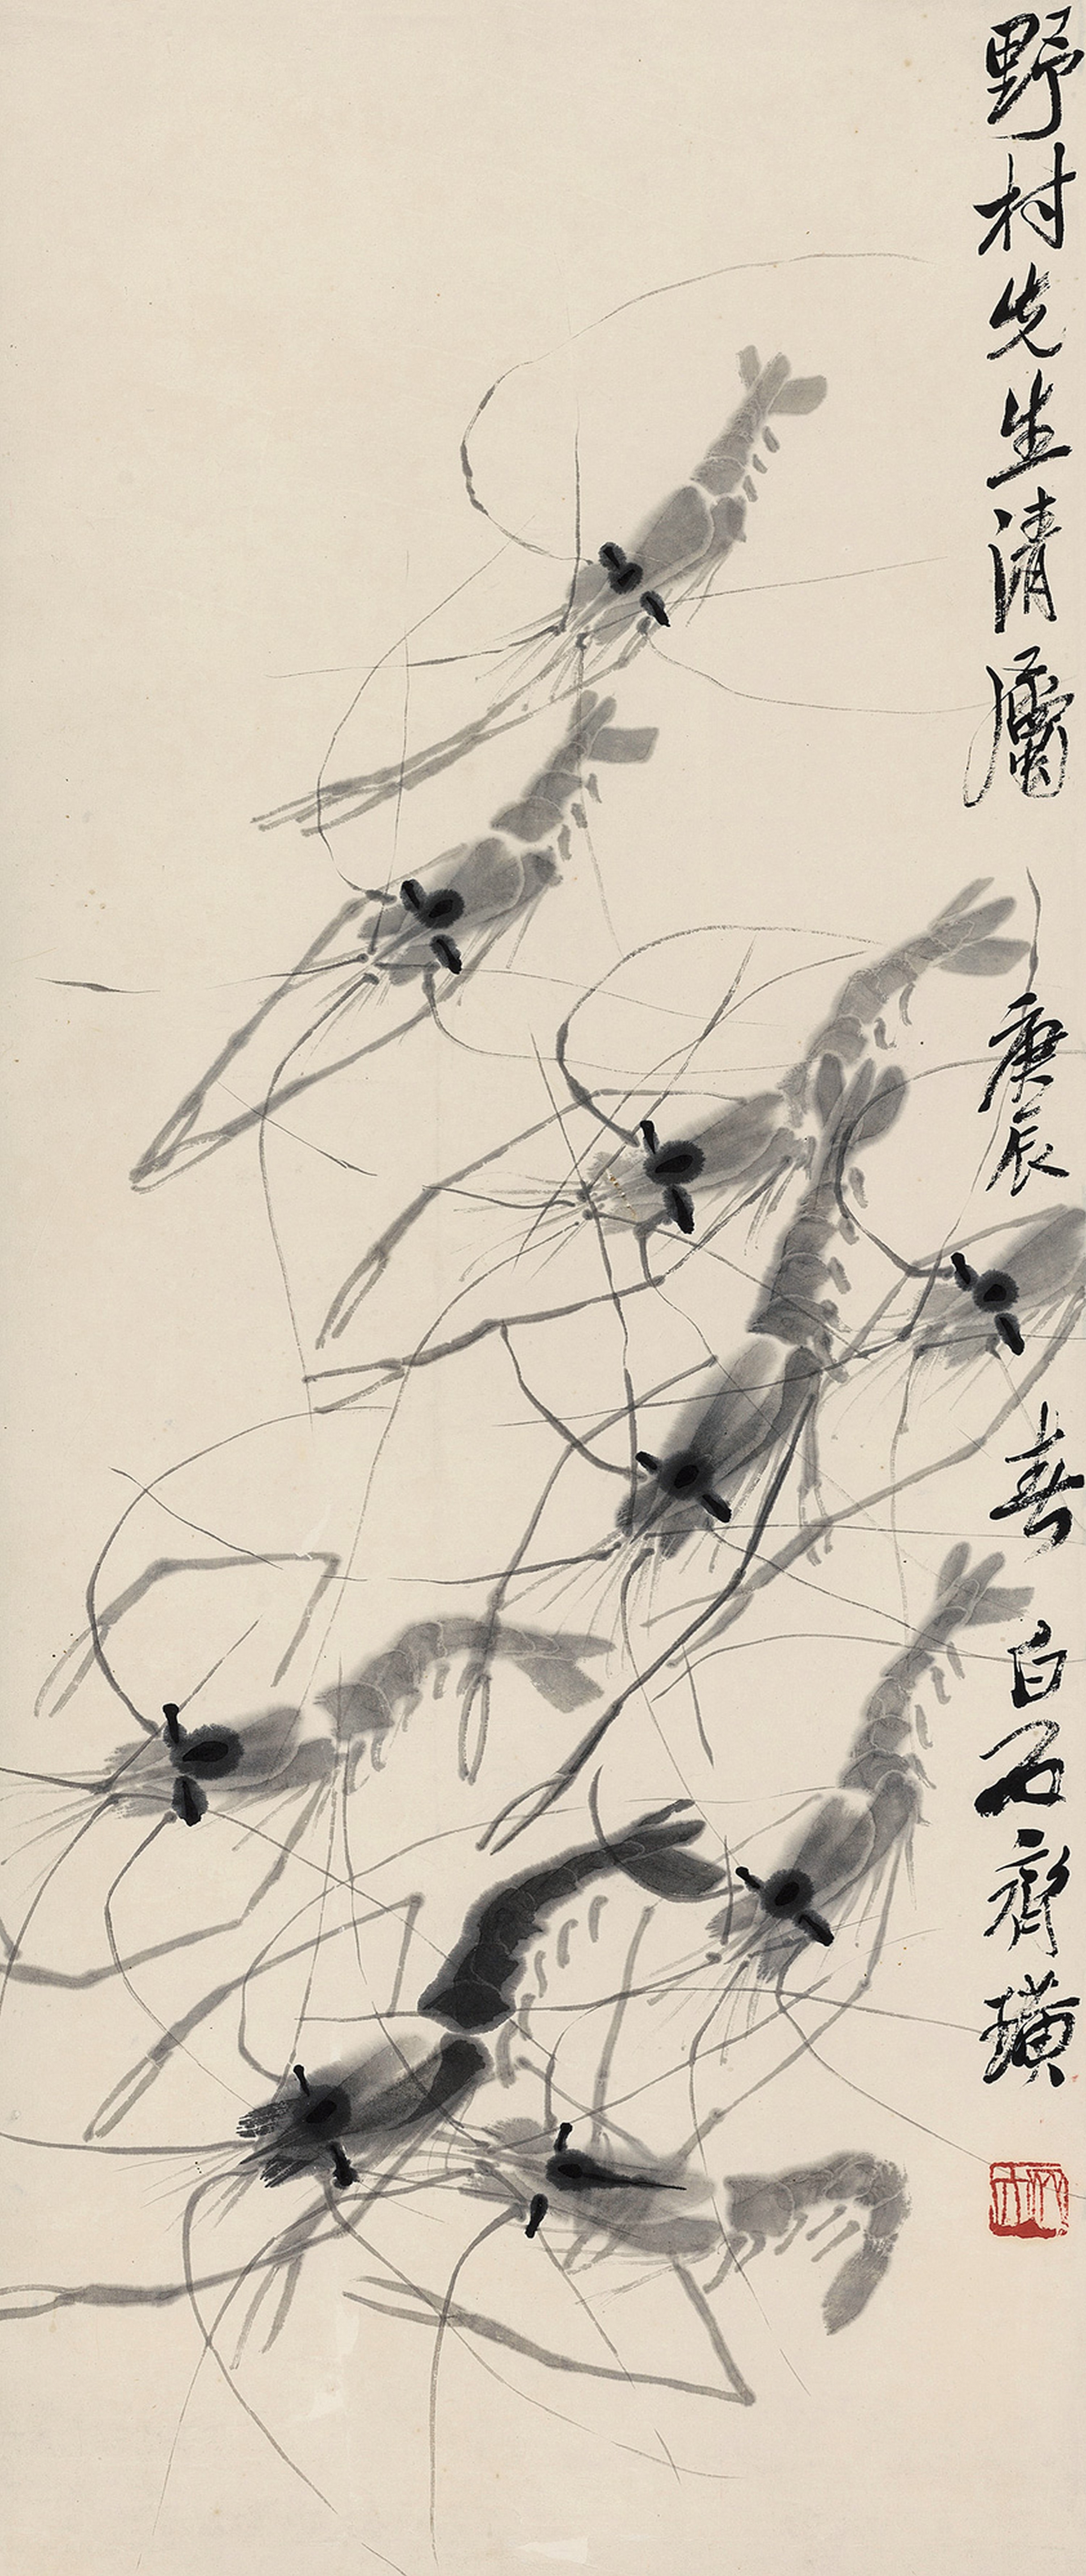 野村先生清屬 庚辰 春 白石齊璜